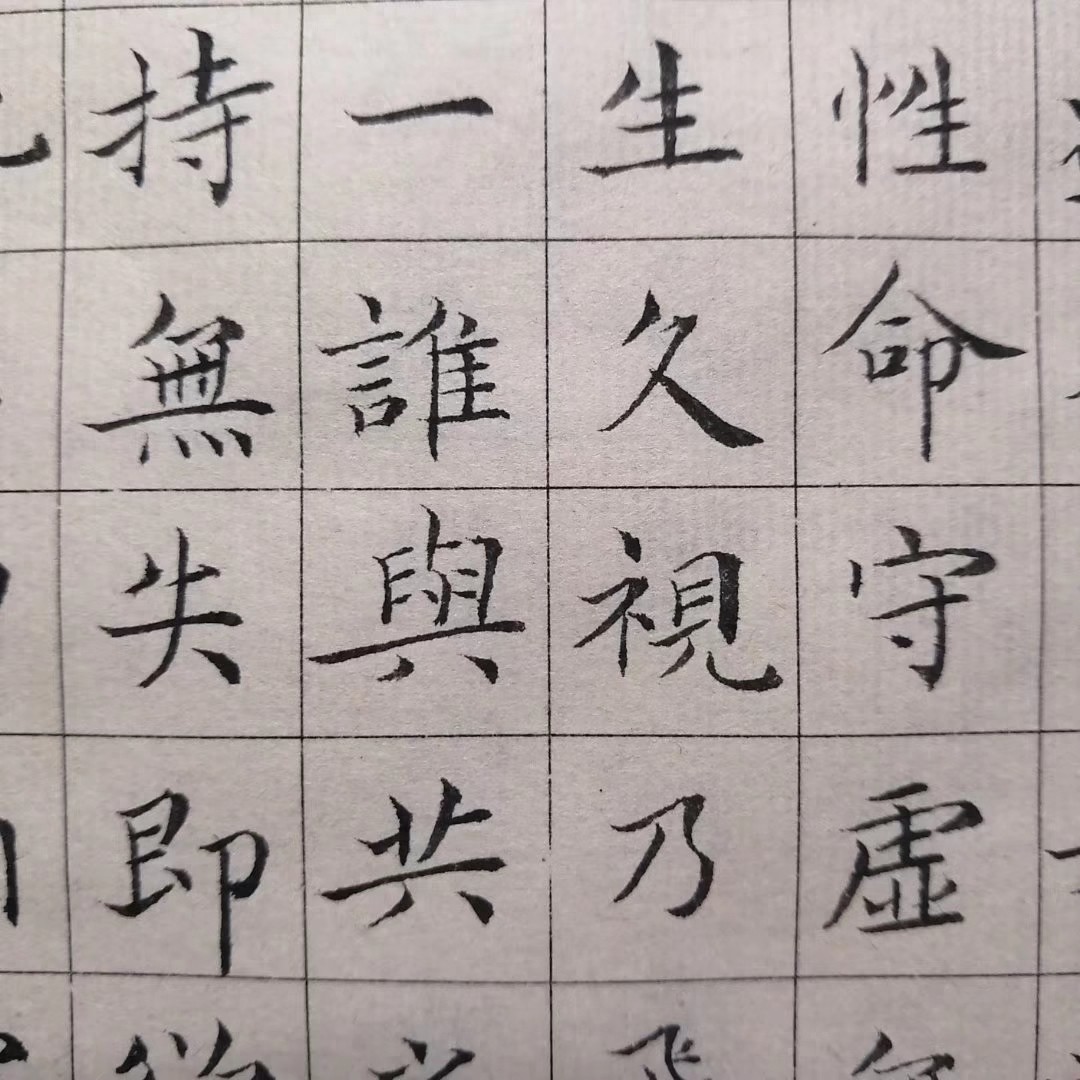 性命守虛
生久視乃
一誰與共
持無失即